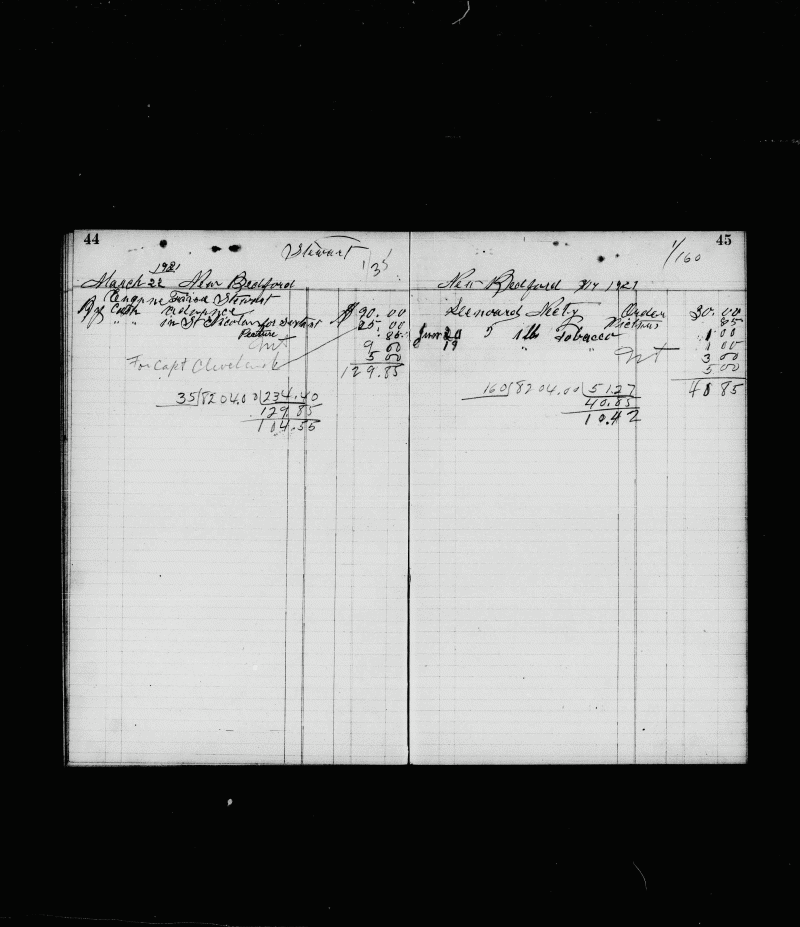 44
Stewart
1/35
1921
March 22 New Bedford
Stewart
By Cash 90.00
" " in St 25 00
Picture .85
Int 9 00
For Capt Cleveland 5 00
129.85
35/8204.00/234.40
129.85
104.55
45
1/160
New Bedford 1921
Order 30.00
Pictures 85
June 20 5 1 lb Tobacco 1 00
19 " " 1 00
Int 3 00
5 00
40 85
160/8204.00/51.27
40.85
10.42